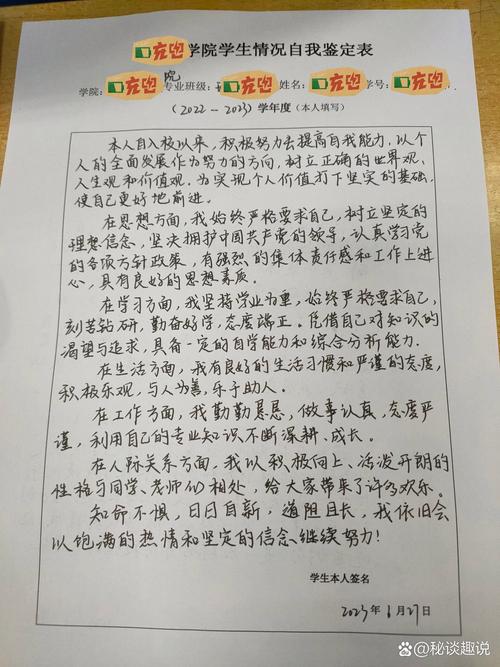 充饱学院学生情况自我鉴定表
学院：充饱院专业班级：充饱姓名：充饱学号：充饱
（2022--2023）学年度（本人填写）
本人自入校以来，积极努力去提高自我能力，以个
人的全面发展作为努力的方向，树立正确的世界观、
人生观和价值观，为实现个人价值打下坚实的基础，
使自己更好地前进。
在思想方面，我始终严格要求自己，树立坚定的
理想信念，坚决拥护中国共产党的领导，认真学习党
的各项方针政策，有强烈的集体责任感和工作上进
心，具有良好的思想素质。
在学习方面，我坚持学业为重，始终严格要求自己，
刻苦钻研，勤奋好学，态度端正。凭借自己对知识的
渴望与追求，具备一定的自学能力和综合分析能力。
在生活方面，我有良好的生活习惯和严谨的态度，
积极乐观，与人为善，乐于助人。
在工作方面，我勤勤恳恳，做事认真，态度严
谨，利用自己的专业知识不断深耕、成长。
在人际关系方面，我以积极向上、活泼开朗的
性格与同学、老师们相处，给大家带来了许多欢乐。
知命不惧，日日自新，道阻且长，我依旧会
以饱满的热情和坚定的信念继续努力！
学生本人签名
2023年6月27日
@秘谈趣说